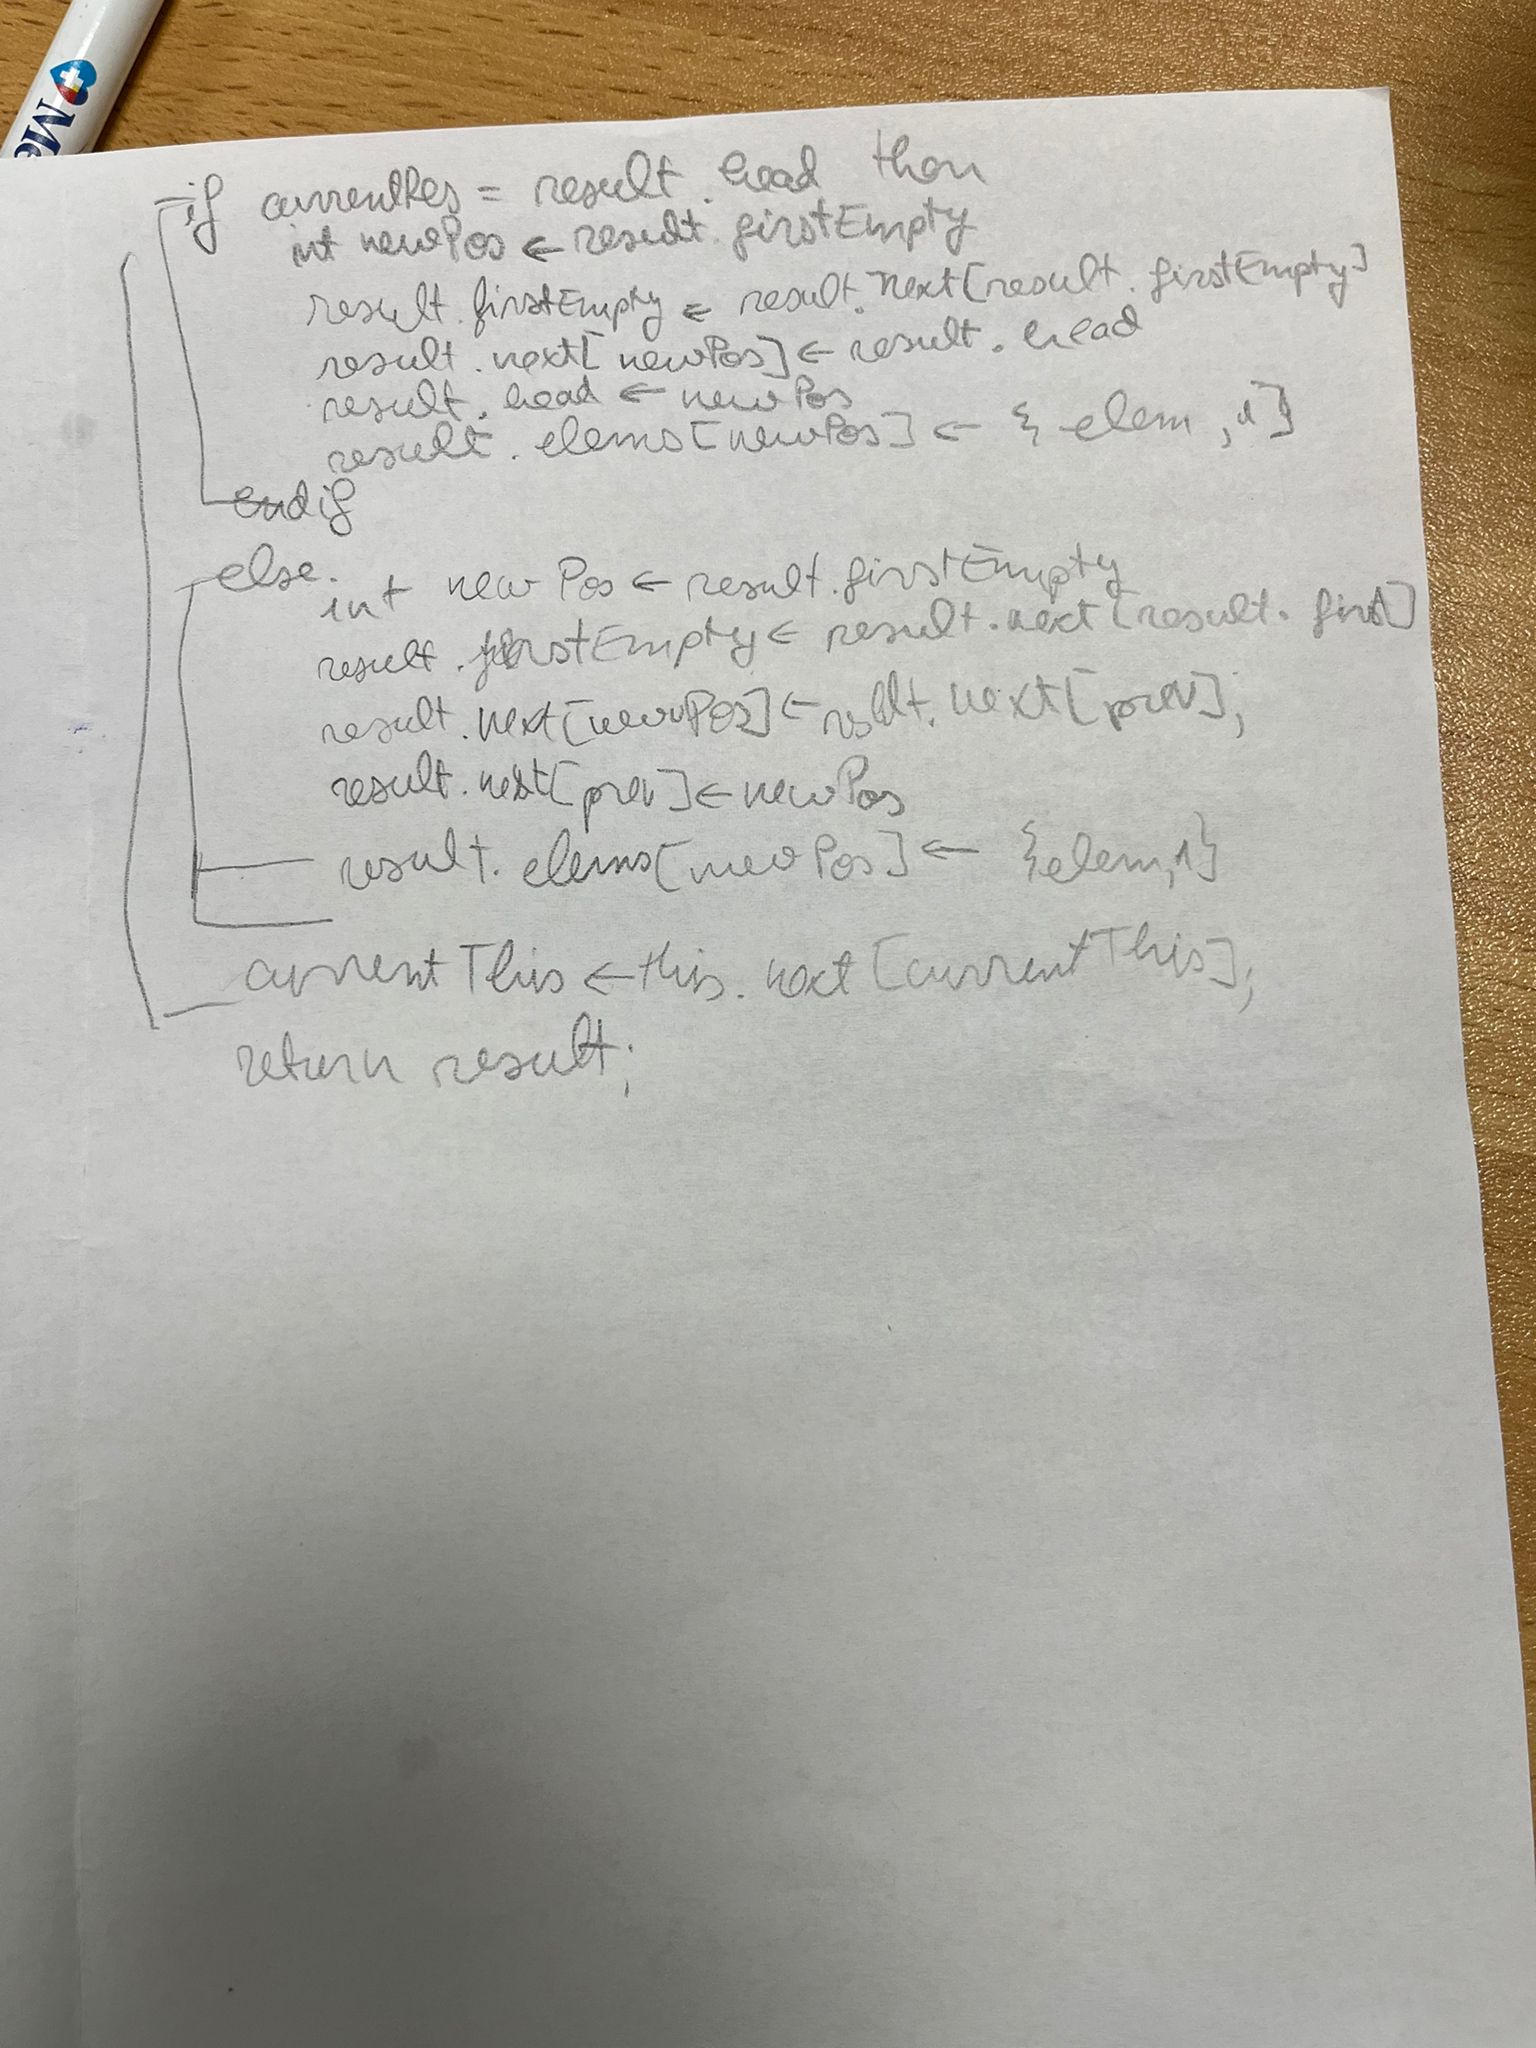 Me
if currentRes = result.head then
int newPos ← result.firstEmpty
result.firstEmpty ← result.next[result.firstEmpty]
result.next[newPos] ← result.head
result.head ← newPos
result.elems[newPos] ← {elem,1}
endif
else.
int newPos ← result.firstEmpty
result.firstEmpty ← result.next[result.first]
result.next[newPos] ← result.next[prev];
result.next[prev] ← newPos
result.elems[newPos] ← {elem,1}
currentThis ← this.next[currentThis];
return result;